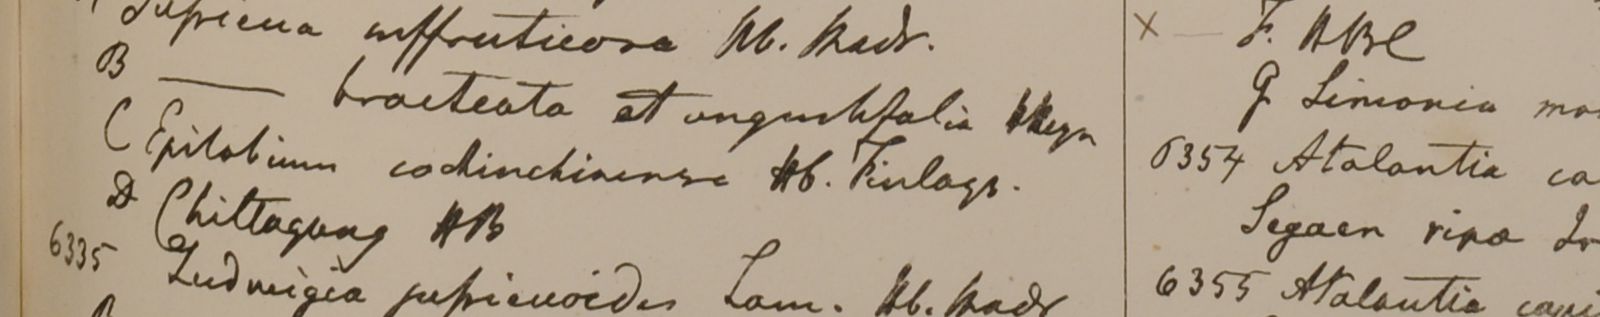 Jussieua suffruticosa Hb. Madr.
B ——— bracteata et angustifolia HHeyn
C Epilobium cochinchinense Hb. Finlays.
D Chittagong HB
6335 Ludwigia jussieuoides Lam. Hb. Madr
B
X — F. HBC
G Limonia mo
6354 Atalantia ca
Segaen ripa Ir
6355 Atalantia capi